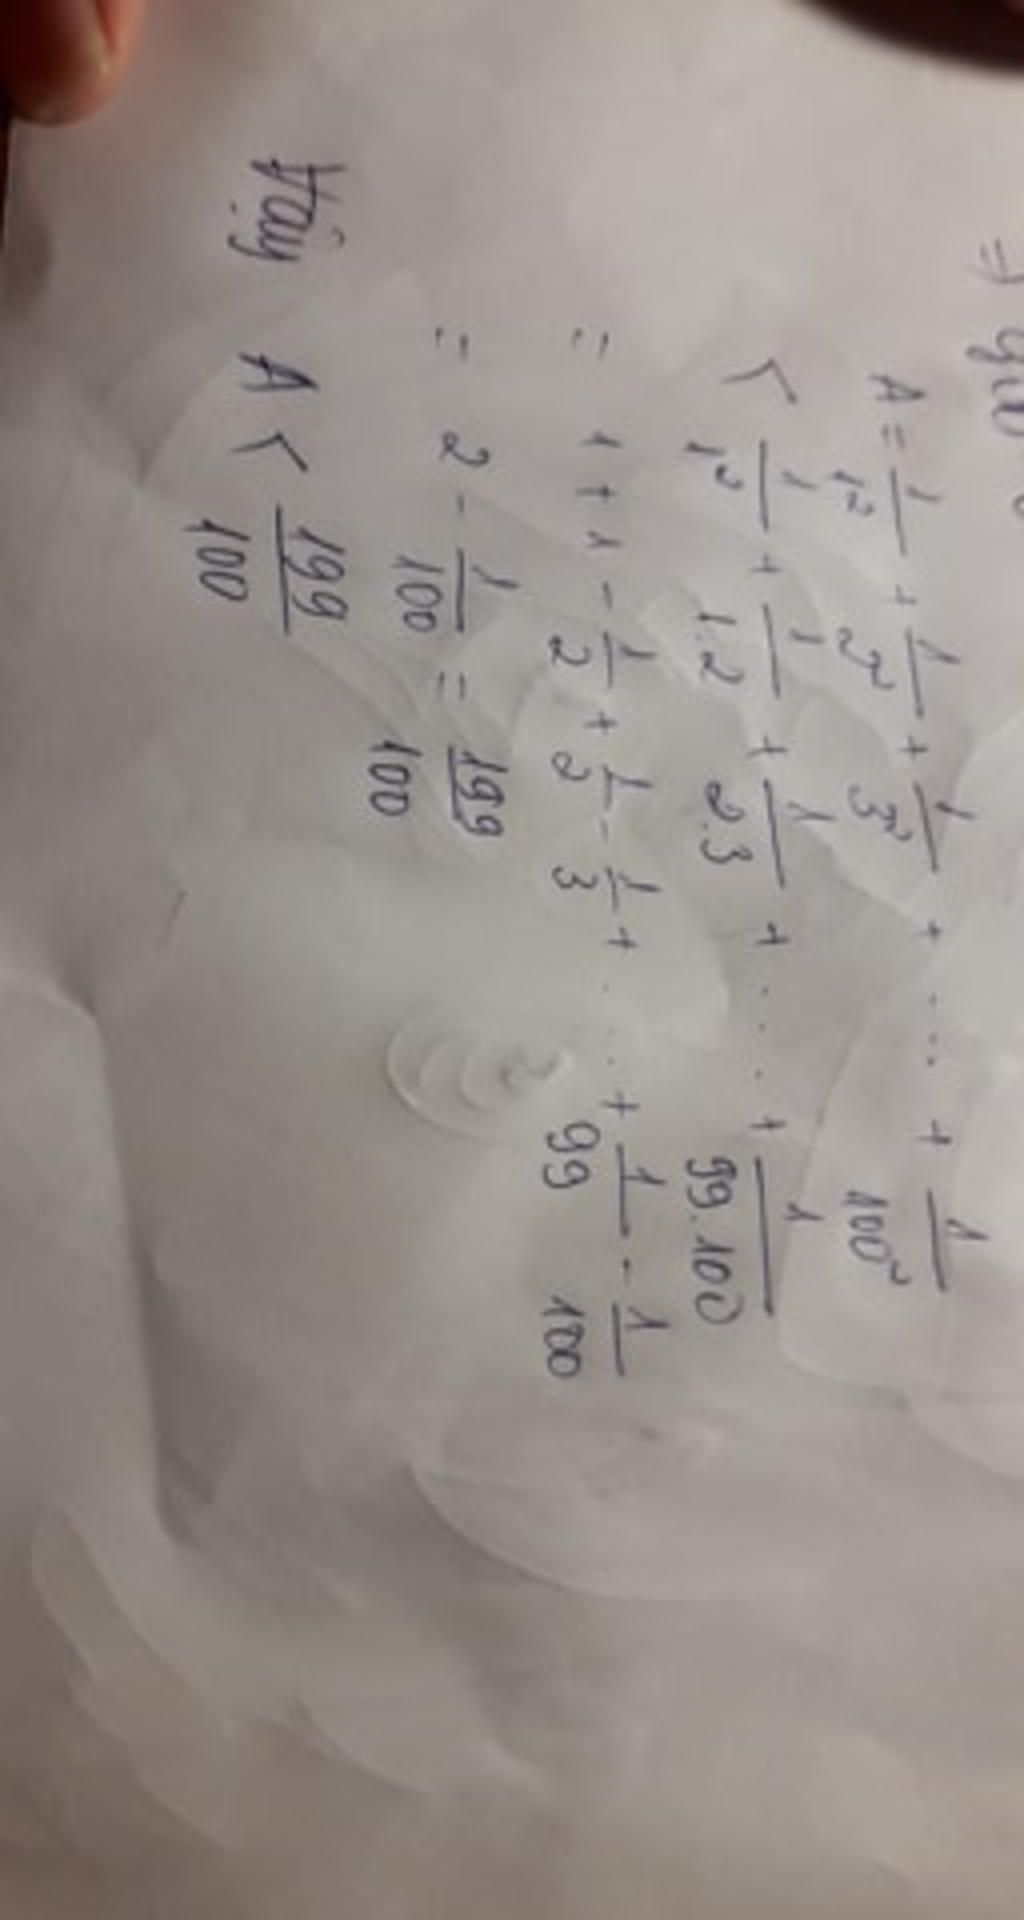 =>
A = 1/1² + 1/2² + 1/3² + ... + 1/100²
< 1/1² + 1/1.2 + 1/2.3 + ... + 1/99.100
= 1 + 1 - 1/2 + 1/2 - 1/3 + ... + 1/99 - 1/100
= 2 - 1/100 = 199/100
Vậy A < 199/100